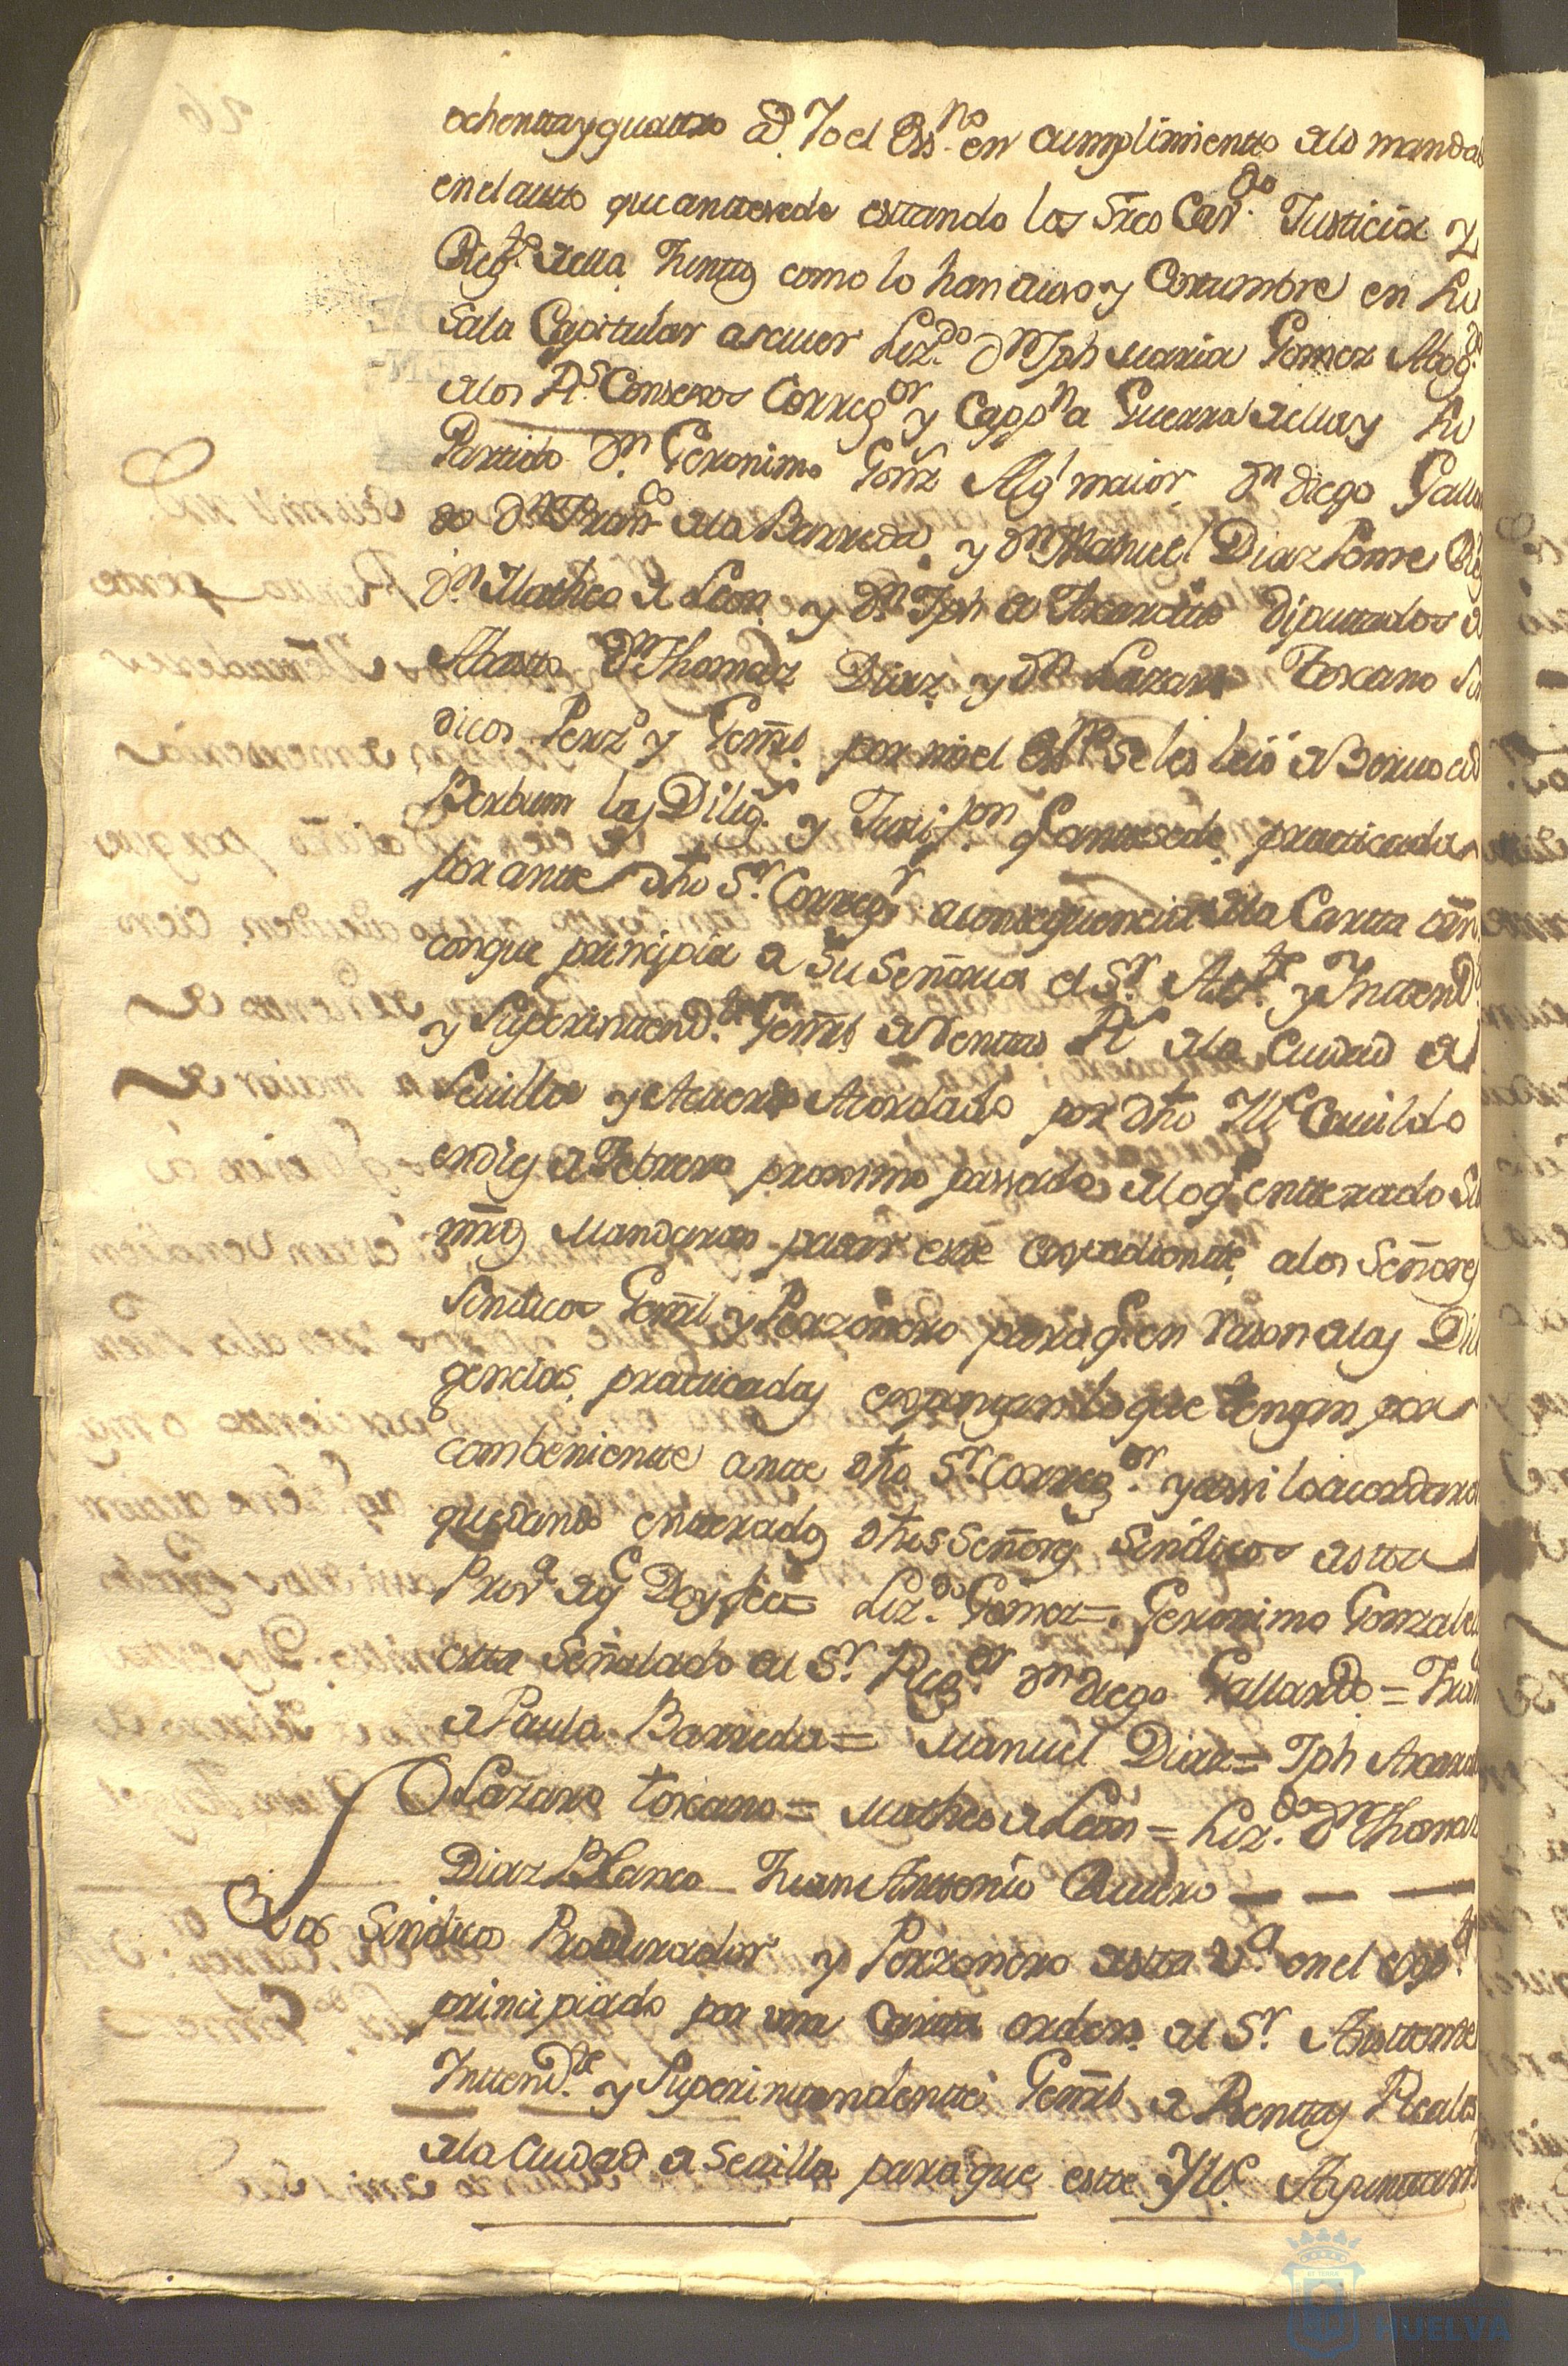 ochentta y quattro as. Yo el Essno. en cumplimientto alo manda
en el autto que anttesede esttando los Sres Cavdo. Justicia y
Regto. della Junttos como lo han de uso y Costumbre en Su
Sala Capitular asauer Lizdo. Dn Jph Maria Gomez Abogdo
de los Rs. Consexos Corregor y Cappn a Guerra della y Su
Partido Dn. Geronimo Gonz Algl maior Dn diego Galla
do Dn Franco de la Barreda y Dn Manuel Diaz Ponse Re
Dn Matheo de Leon y Dn Jph de diputtados de
Abastto Dn Thomaz Diaz y Dn Lazaro Toscano Sin
dicos Perzo y Genrl. por mi el Essno se les leió de Boruo ad
Berbum las Diligs. y Jurispon q anttesede practicada
por antte dho Sr. Corregr aconsequencia dela Cartta orn
con que principia de Su Señoria el Sr. Astte. y Inttendte
y Superinttendte Genrl de Renttas Rs dela Ciudad de
Sevilla y Acuerdo Acordado por dho Ille Cauildo
en dies de Febrero proximo passado de lo q entterado Su
mrds Mandaron pasar estte expedientte alos Señores
Sindicos Genrl y Perzonero para q en rason alas Dili
gencias practicadas expongan lo que tengan por
combenientte antte dho Sr. Corregor. y assi lo acordaron
quedando entterados dhos Señores Sindicos de estta
Prova de q Doy fee = Lizdo. Gomez = Geronimo Gonzales
estta Señalado del Sr. Regor Dn diego Gallardo = Fran
de Paula Barreda = Manuel Diaz = Jph
Lazaro toscano = Matheo de Leon = Lizdo. Dn Thomas
Diaz Blanco – Juan Anttonio Quintero – – –
Los Sindico Procurador y Perzonero de estta Va. en el expte
principiado por una Cartta orden del Sr Asisttentte
Inttendte. y Superinttendentte Genrl de Renttas Reales
de la Ciudad de Sevilla para que estte Ylle. Ayunttam
HUELVA